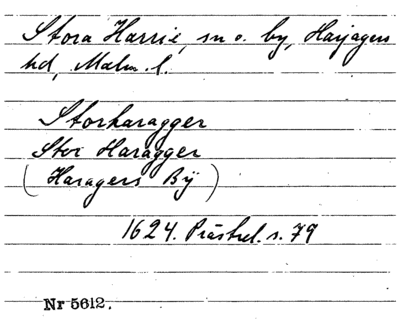 Stora Harrie, sn o. by, Harjagers
hd, Malm. l.
Storharagger
Stor Haragger
(Haragers Bÿ)
1624. Prästrel. s. 79
Nr 5612.